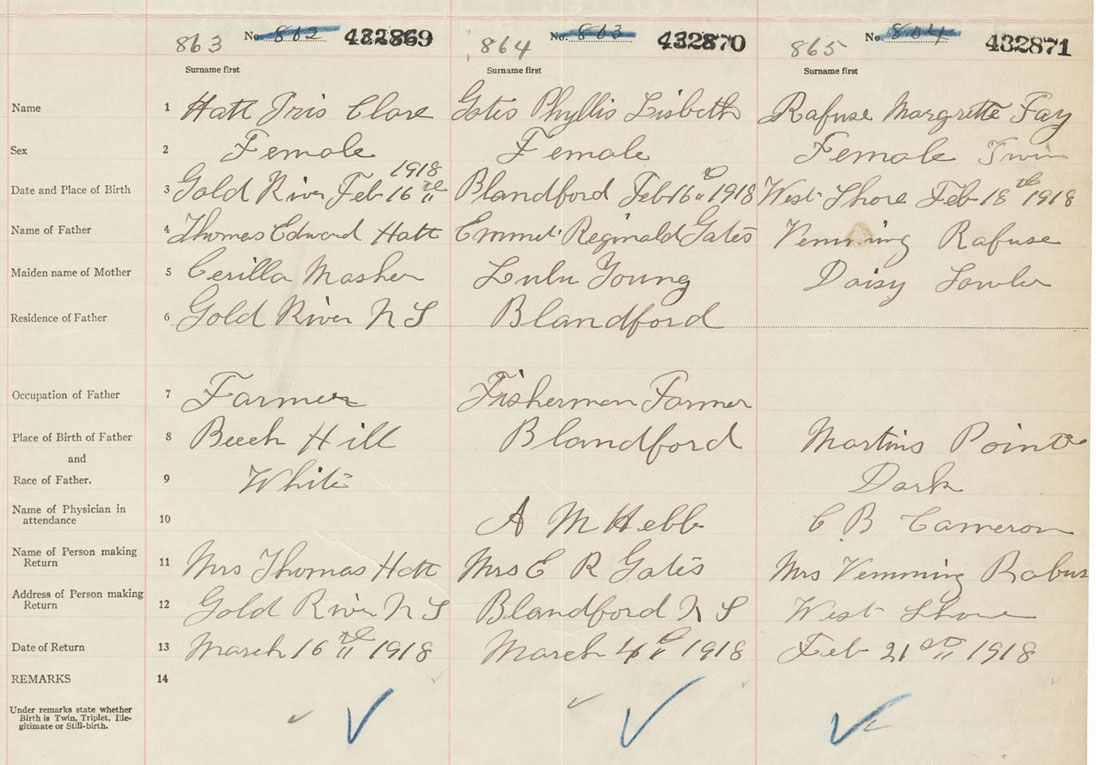 863 No. 862 432869 864 No. 863 432870 865 No. 864 432871
Surname first Surname first Surname first
Name 1 Hatt Iris Clare Gates Phyllis Lisbeth Rafuse Margrette Fay
Sex 2 Female Female Female Twin
1918
Date and Place of Birth 3 Gold River Feb 16th Blandford Feb 16th 1918 West Shore Feb 18th 1918
Name of Father 4 Thomas Edward Hatt Emmet Reginald Gates Vemming Rafuse
Maiden name of Mother 5 Cerilla Masher Lulu Young Daisy Lowler
Residence of Father 6 Gold River N S Blandford
Occupation of Father 7 Farmer Fisherman Farmer
Place of Birth of Father 8 Beech Hill Blandford Martins Point
and
Race of Father. 9 White Dark
Name of Physician in
attendance 10 A M Hebb C B Cameron
Name of Person making
Return 11 Mrs Thomas Hatt Mrs E R Gates Mrs Vemming
Address of Person making
Return 12 Gold River N S Blandford N S West Shore
Date of Return 13 March 16th 1918 March 4th 1918 Feb 21st 1918
REMARKS 14
Under remarks state whether
Birth is Twin, Triplet, Ille-
gitimate or Still-birth.